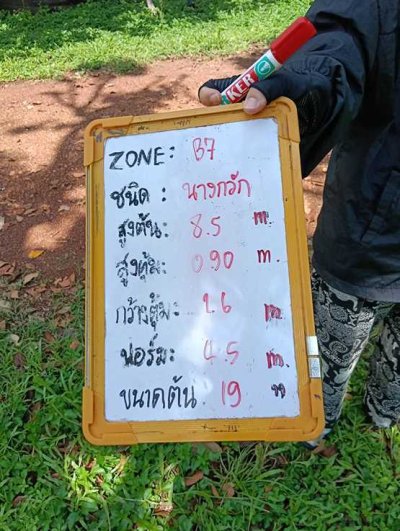 KER
ZONE: B7
ชนิด: นางกวัก
สูงต้น: 8.5 m.
สูงตุ้ม: 0.90 m.
กว้างตุ้ม: 1.6 m.
ฟอร์ม: 4.5 m.
ขนาดต้น 19